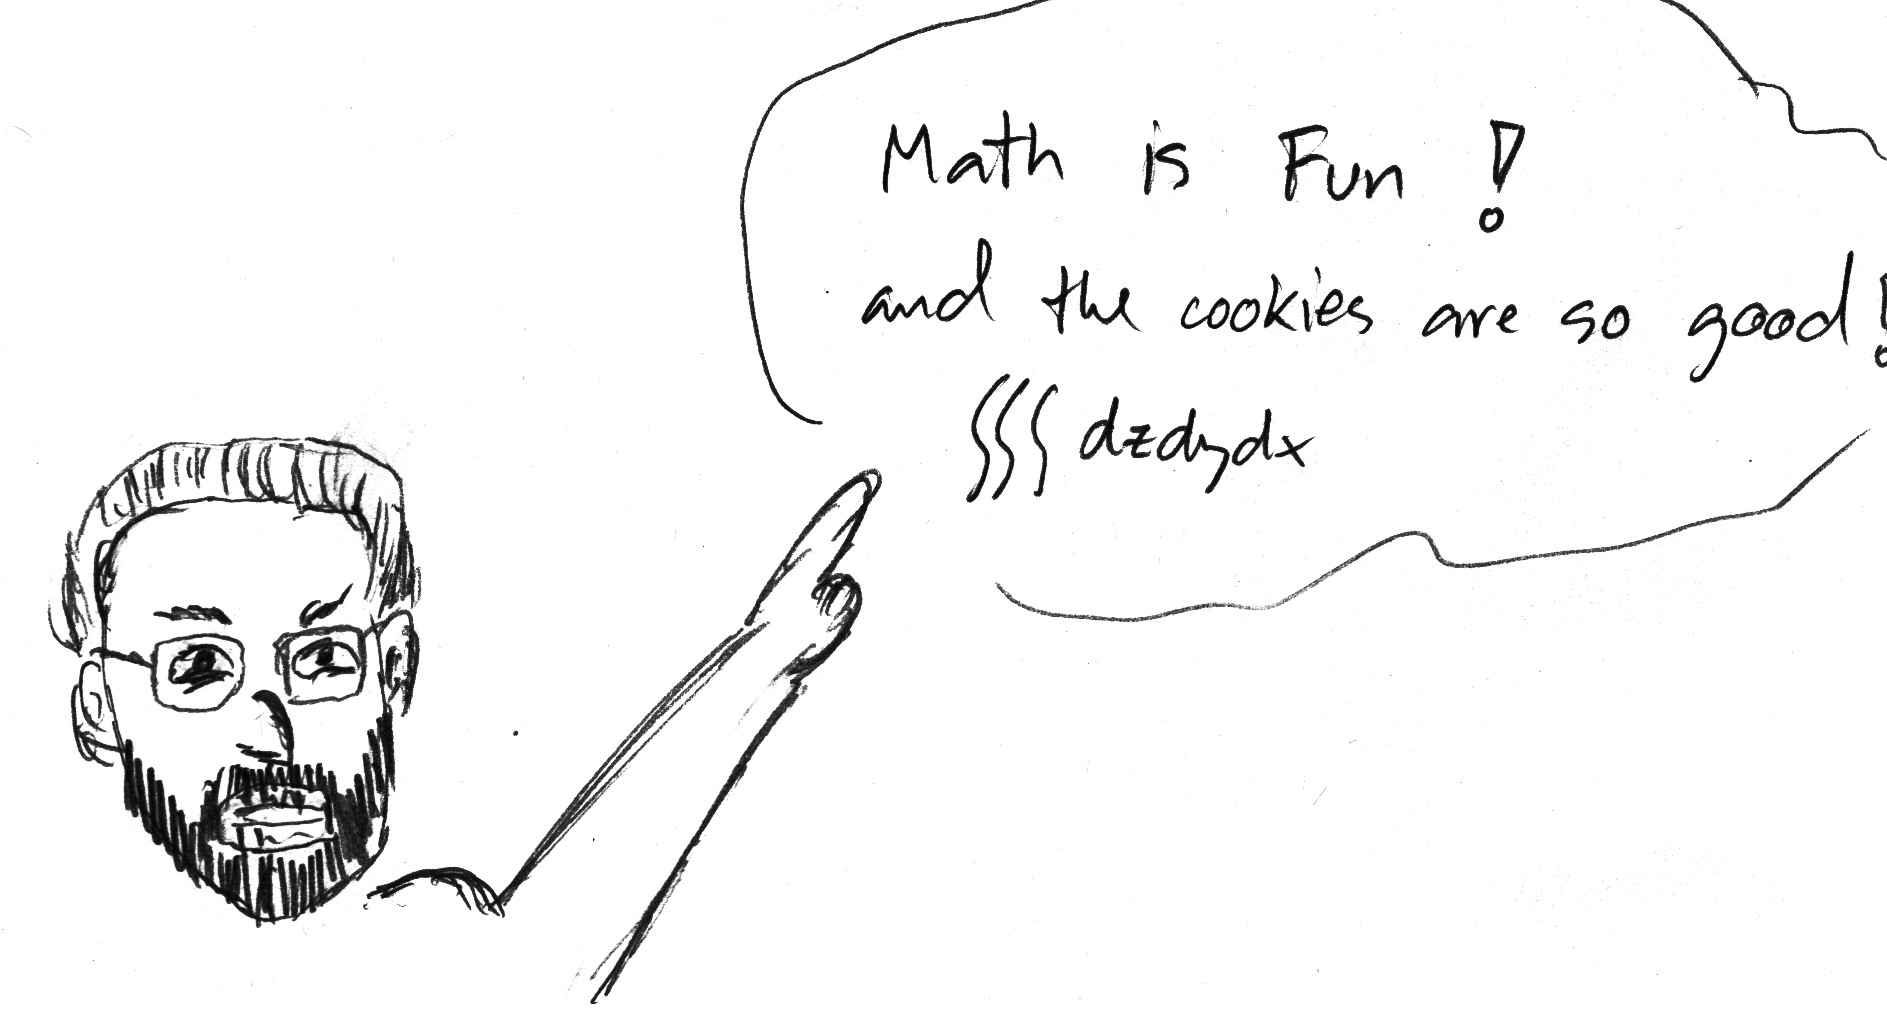 Math is Fun!
and the cookies are so good!
∫∫∫ dzdydx